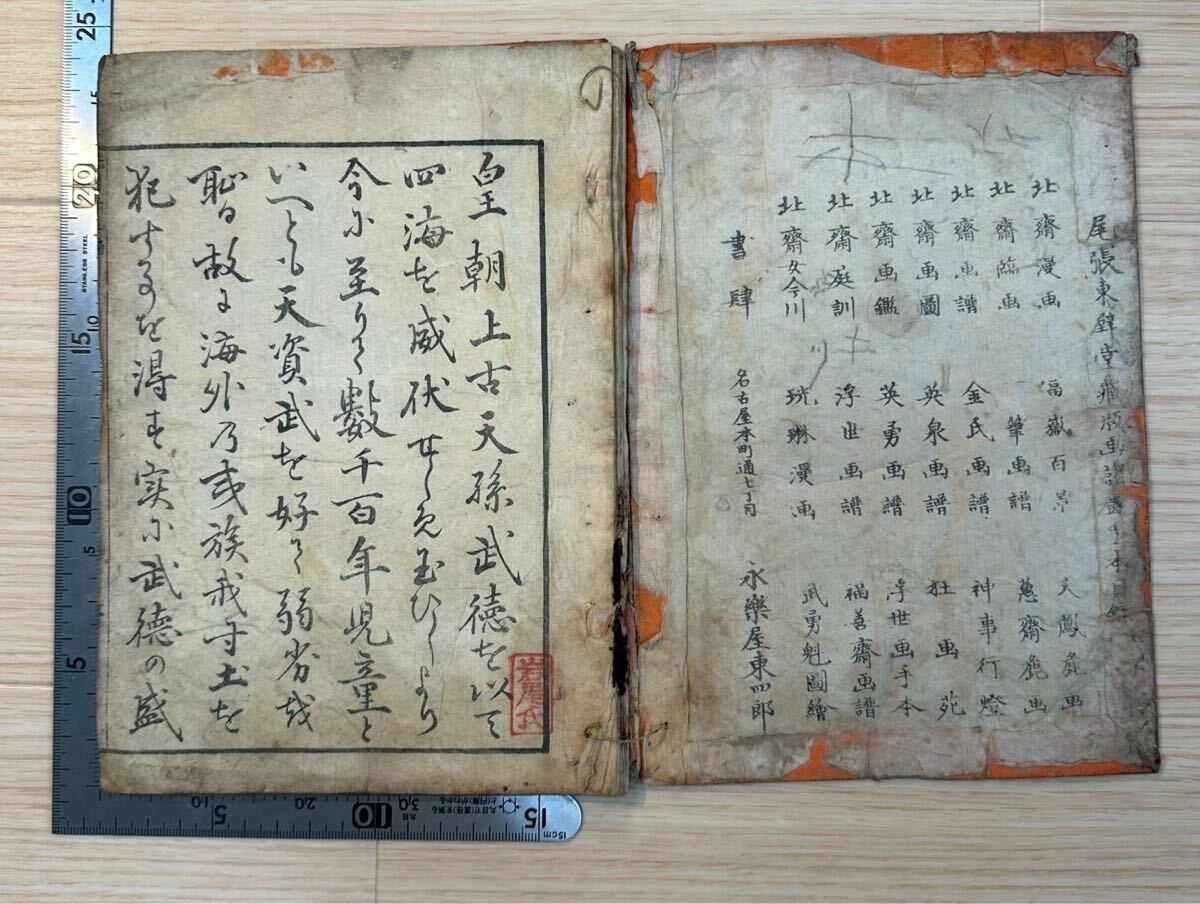 尾張東壁堂藏版画譜畫手本目録
北齋漫画 富嶽百景 文鳳麁画
北齋臨画 筆画譜 蕙齋麁画
北齋画譜 金氏画譜 神事行燈
北齋画圖 英泉画譜 狂画苑
北齋画鑑 英勇画譜 浮世画手本
北齋庭訓 浮世画譜 福善齋画譜
北齋女今川 琳漫画 武勇魁圖繪
書肆 名古屋本町通七丁目 永樂屋東四郎
皇朝上古天孫武徳を以て
四海を威伏せしめ玉ひしより
今に至りて數千百年児童と
いへとも天資武を好て弱劣を
恥る故に海外乃戎族我寸土を
犯すことを得す実に武徳の盛
岩尾氏
25
20
15
10
5
STAINLESS STEEL
5
10
15
15cm